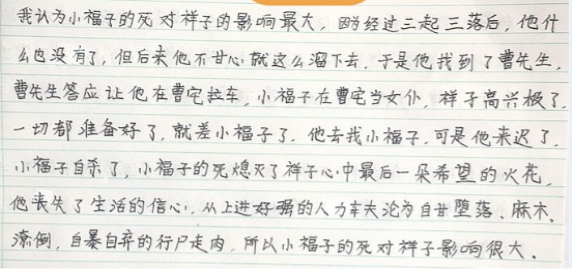 我认为小福子的死对祥子的影响最大，因经过三起三落后，他什
么也没有了，但后来他不甘心就这么溜下去，于是他找到了曹先生，
曹先生答应让他在曹宅拉车，小福子在曹宅当女仆，祥子高兴极了，
一切都准备好了，就差小福子了，他去找小福子，可是他来迟了，
小福子自杀了，小福子的死熄灭了祥子心中最后一朵希望的火花，
他丧失了生活的信心，从上进好强的人力车夫沦为自甘堕落、麻木、
潦倒，自暴自弃的行尸走肉，所以小福子的死对祥子影响很大。